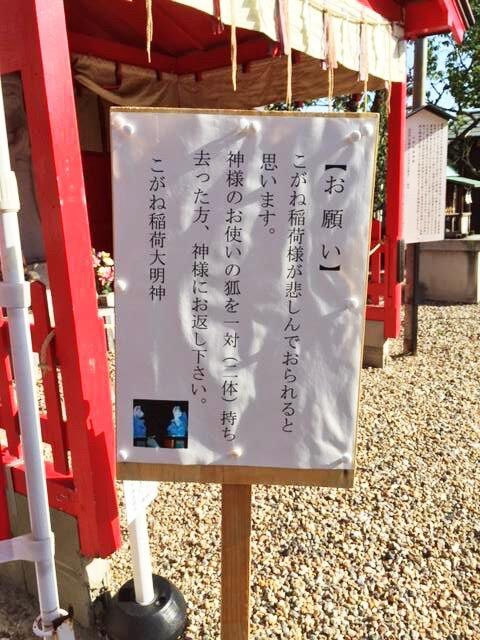 【お願い】
こがね稲荷様が悲しんでおられると
思います。
神様のお使いの狐を一対（二体）持ち
去った方、神様にお返し下さい。
こがね稲荷大明神